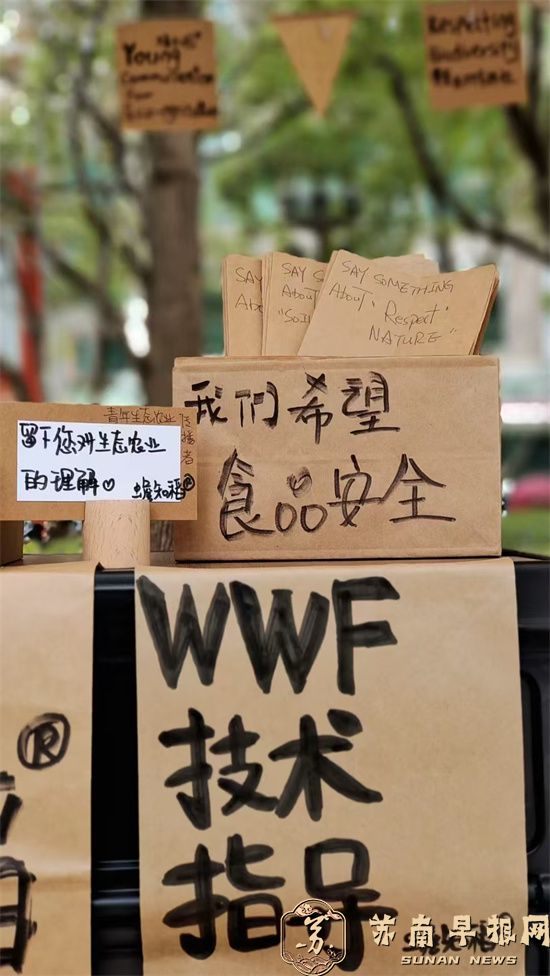 Young
Communicator
for
Eco-agriculture
Respecting
Biodiversity
SAY SOMETHING
About "Respect
NATURE"
SAY S
About
"Soil
SAY
Abo
我们希望
食品安全
青年生态农业传播者
留下您对生态农业
的理解♡
蟾知稻®
WWF
技术
指导
®
苏
苏南早报网
SUNAN NEWS